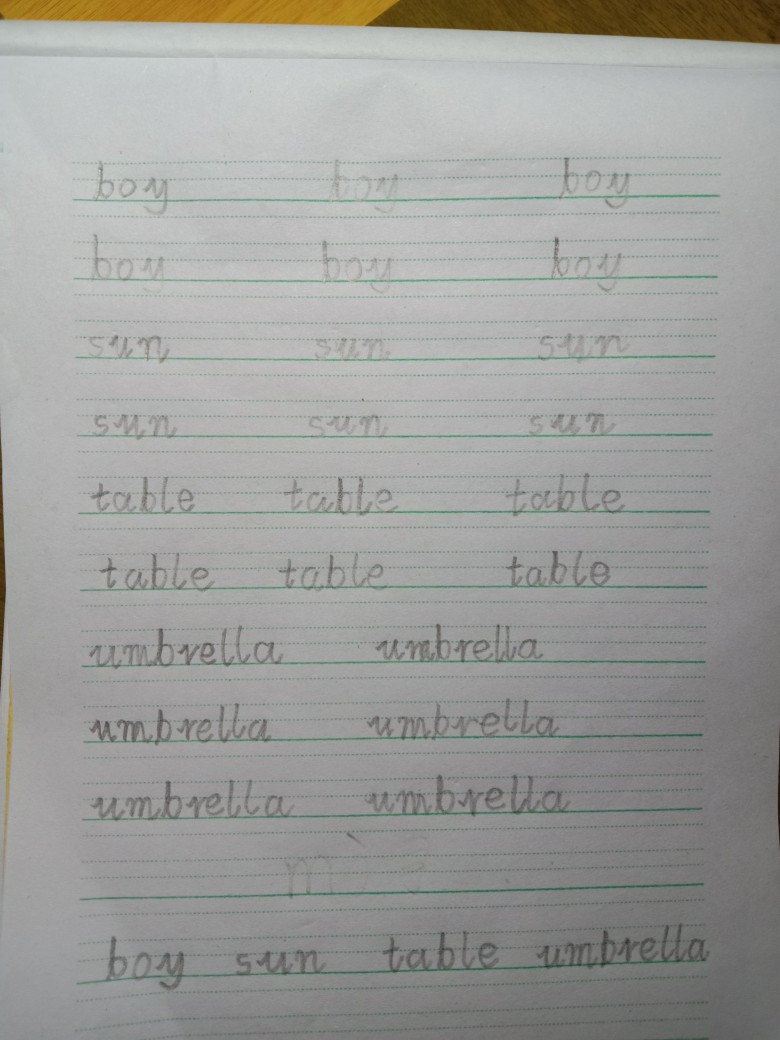 boy boy boy
boy boy boy
sun sun sun
sun sun sun
table table table
table table table
umbrella umbrella
umbrella umbrella
umbrella umbrella
boy sun table umbrella